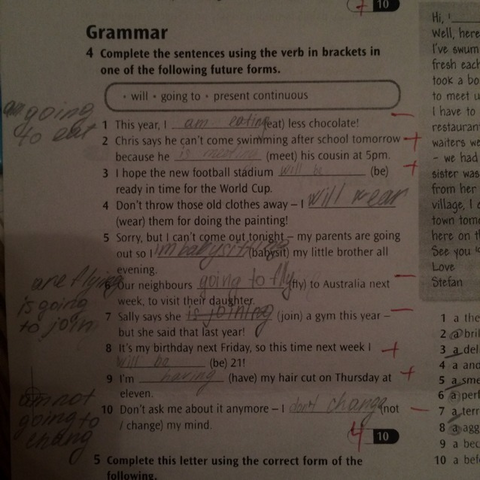 10
Grammar
4 Complete the sentences using the verb in brackets in
one of the following future forms.
• will • going to • present continuous
am going
to eat
1 This year, I am eating (eat) less chocolate!
2 Chris says he can't come swimming after school tomorrow
because he is meeting (meet) his cousin at 5pm.
3 I hope the new football stadium will be (be)
ready in time for the World Cup.
4 Don't throw those old clothes away – I will wear
(wear) them for doing the painting!
5 Sorry, but I can't come out tonight – my parents are going
out so I (babysit) my little brother all
evening.
are flying
neighbours going to fly (fly) to Australia next
week, to visit their daughter.
is going
to join
7 Sally says she is joining (join) a gym this year –
but she said that last year!
8 It's my birthday next Friday, so this time next week I
will be (be) 21!
9 I'm having (have) my hair cut on Thursday at
eleven.
am not
going to
chang
10 Don't ask me about it anymore – I don't change (not
/ change) my mind.
4 10
5 Complete this letter using the correct form of the
following.
Hi, I
Well, here
I've swum
fresh each
took a bo
to meet u
I have to
restaurant
waiters we
- we had
sister was
from her
village, I
town tomo
here on th
See you
Love
Stefan
1 a the
2 a bril
3 a del
4 a ano
5 a sme
6 a perf
7 a terr
8 a agg
9 a bec
10 a bef